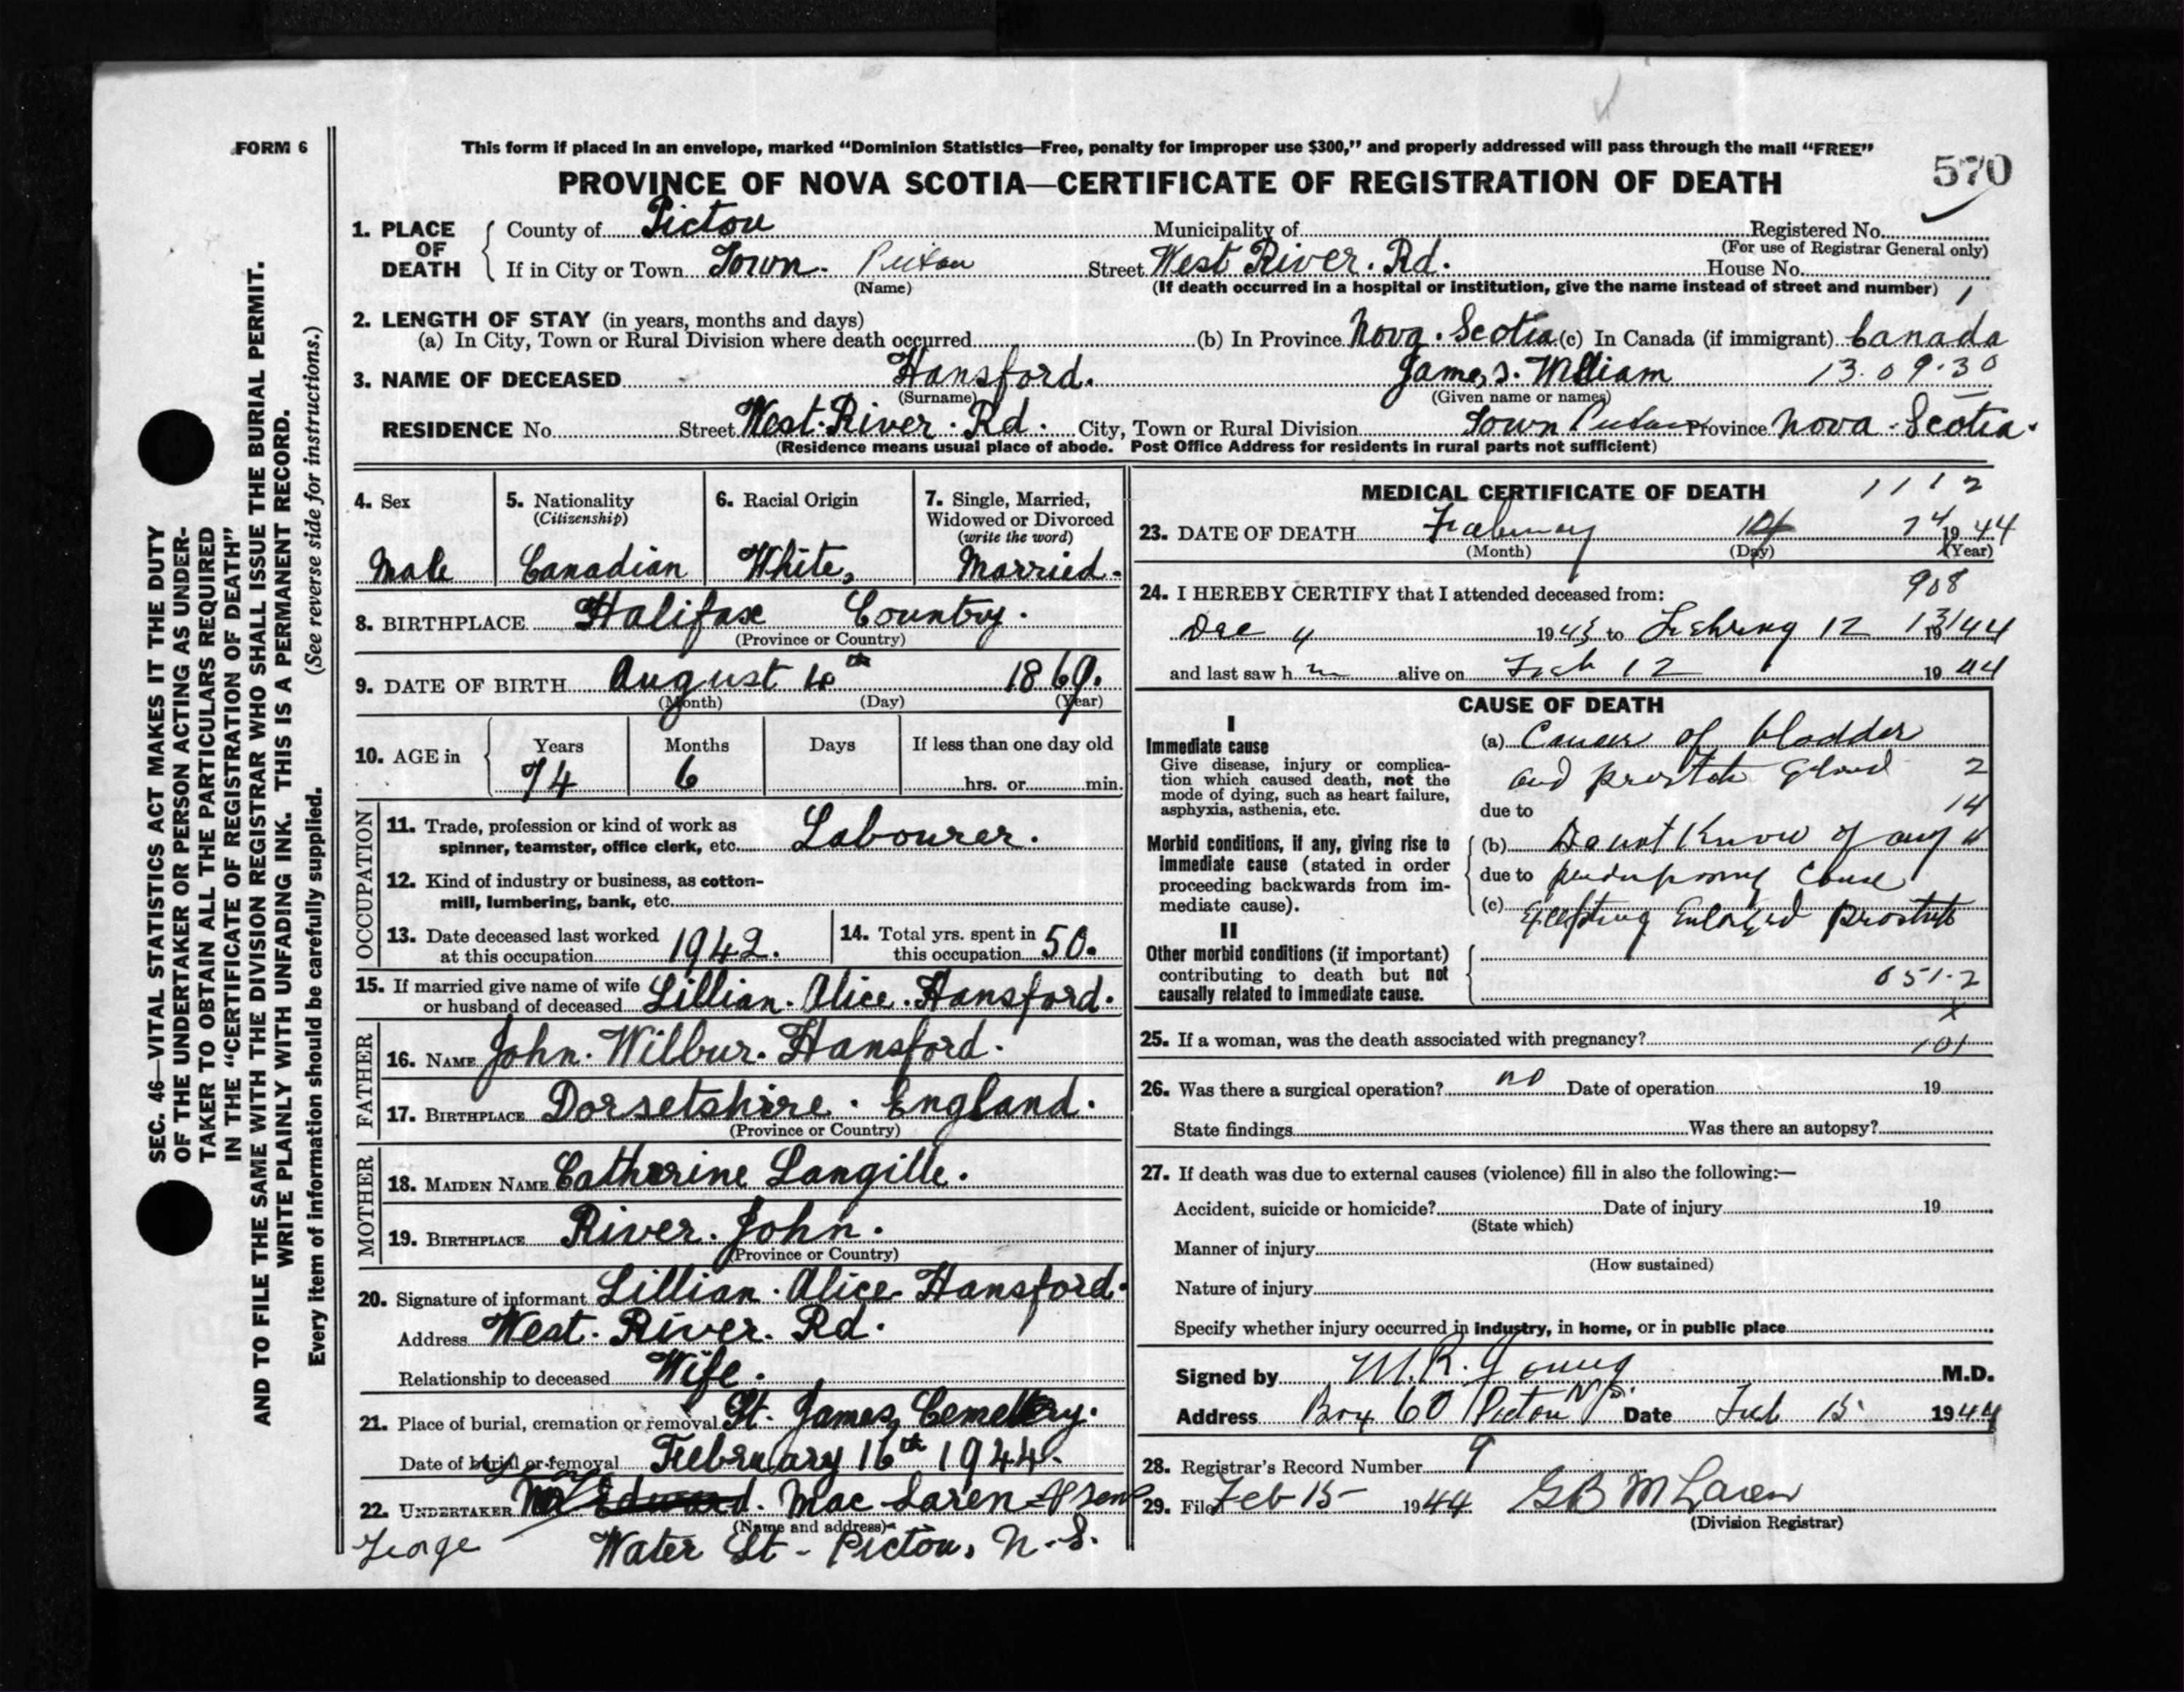 FORM 6
This form if placed in an envelope, marked "Dominion Statistics—Free, penalty for improper use $300," and properly addressed will pass through the mail "FREE"
PROVINCE OF NOVA SCOTIA—CERTIFICATE OF REGISTRATION OF DEATH
570
SEC. 46—VITAL STATISTICS ACT MAKES IT THE DUTY
OF THE UNDERTAKER OR PERSON ACTING AS UNDER-
TAKER TO OBTAIN ALL THE PARTICULARS REQUIRED
IN THE "CERTIFICATE OF REGISTRATION OF DEATH"
AND TO FILE THE SAME WITH THE DIVISION REGISTRAR WHO SHALL ISSUE THE BURIAL PERMIT.
WRITE PLAINLY WITH UNFADING INK. THIS IS A PERMANENT RECORD.
Every item of information should be carefully supplied. (See reverse side for instructions.)
1. PLACE OF DEATH
County of Pictou Municipality of Registered No.
(For use of Registrar General only)
If in City or Town Town. Pictou Street West River. Rd. House No.
(Name) (If death occurred in a hospital or institution, give the name instead of street and number) 1
2. LENGTH OF STAY (in years, months and days)
(a) In City, Town or Rural Division where death occurred (b) In Province Nova. Scotia (c) In Canada (if immigrant) Canada
3. NAME OF DECEASED Hansford. James. William 13.09.30
(Surname) (Given name or names)
RESIDENCE No. Street West. River. Rd. City, Town or Rural Division Town Pictou Province Nova. Scotia.
(Residence means usual place of abode. Post Office Address for residents in rural parts not sufficient)
4. Sex
Male
5. Nationality
(Citizenship)
Canadian
6. Racial Origin
White,
7. Single, Married,
Widowed or Divorced
(write the word)
Married.
8. BIRTHPLACE Halifax Country.
(Province or Country)
9. DATE OF BIRTH August 4th 1869.
(Month) (Day) (Year)
10. AGE in Years Months Days If less than one day old
74 6 hrs. or min.
OCCUPATION
11. Trade, profession or kind of work as
spinner, teamster, office clerk, etc. Labourer.
12. Kind of industry or business, as cotton-
mill, lumbering, bank, etc.
13. Date deceased last worked
at this occupation 1942.
14. Total yrs. spent in
this occupation 50.
15. If married give name of wife
or husband of deceased Lillian. Alice. Hansford.
FATHER
16. NAME John. Wilbur. Hansford.
17. BIRTHPLACE Dorsetshire. England.
(Province or Country)
MOTHER
18. MAIDEN NAME Catherine Langille.
19. BIRTHPLACE River. John.
(Province or Country)
20. Signature of informant Lillian. Alice Hansford.
Address West. River. Rd.
Relationship to deceased Wife.
21. Place of burial, cremation or removal St. James, Cemetery.
Date of burial or removal February 16th 1944.
22. UNDERTAKER Mr Edward. Mac Laren & Sons
(Name and address)
George Water St - Pictou, N.S.
MEDICAL CERTIFICATE OF DEATH 1112
23. DATE OF DEATH February 14 1944
(Month) (Day) (Year)
24. I HEREBY CERTIFY that I attended deceased from: 908
Dec 4 1943 to February 12 1944
and last saw h m alive on Feb 12 1944
CAUSE OF DEATH
I
Immediate cause
Give disease, injury or complica-
tion which caused death, not the
mode of dying, such as heart failure,
asphyxia, asthenia, etc.
(a) Cancer of bladder
and prostate gland 2
due to 14
Morbid conditions, if any, giving rise to
immediate cause (stated in order
proceeding backwards from im-
mediate cause).
(b) Do not Know of any
due to predisposing cause
(c) Excepting Enlarged prostate
II
Other morbid conditions (if important)
contributing to death but not
causally related to immediate cause.
051-2
25. If a woman, was the death associated with pregnancy? 101
26. Was there a surgical operation? no Date of operation 19
State findings Was there an autopsy?
27. If death was due to external causes (violence) fill in also the following:—
Accident, suicide or homicide? Date of injury 19
(State which)
Manner of injury
(How sustained)
Nature of injury
Specify whether injury occurred in industry, in home, or in public place
Signed by M.R. Young M.D.
Address Box 60 Pictou N.S. Date Feb 15 1944
28. Registrar's Record Number 9
29. Filed Feb 15 1944 GB McLaren
(Division Registrar)